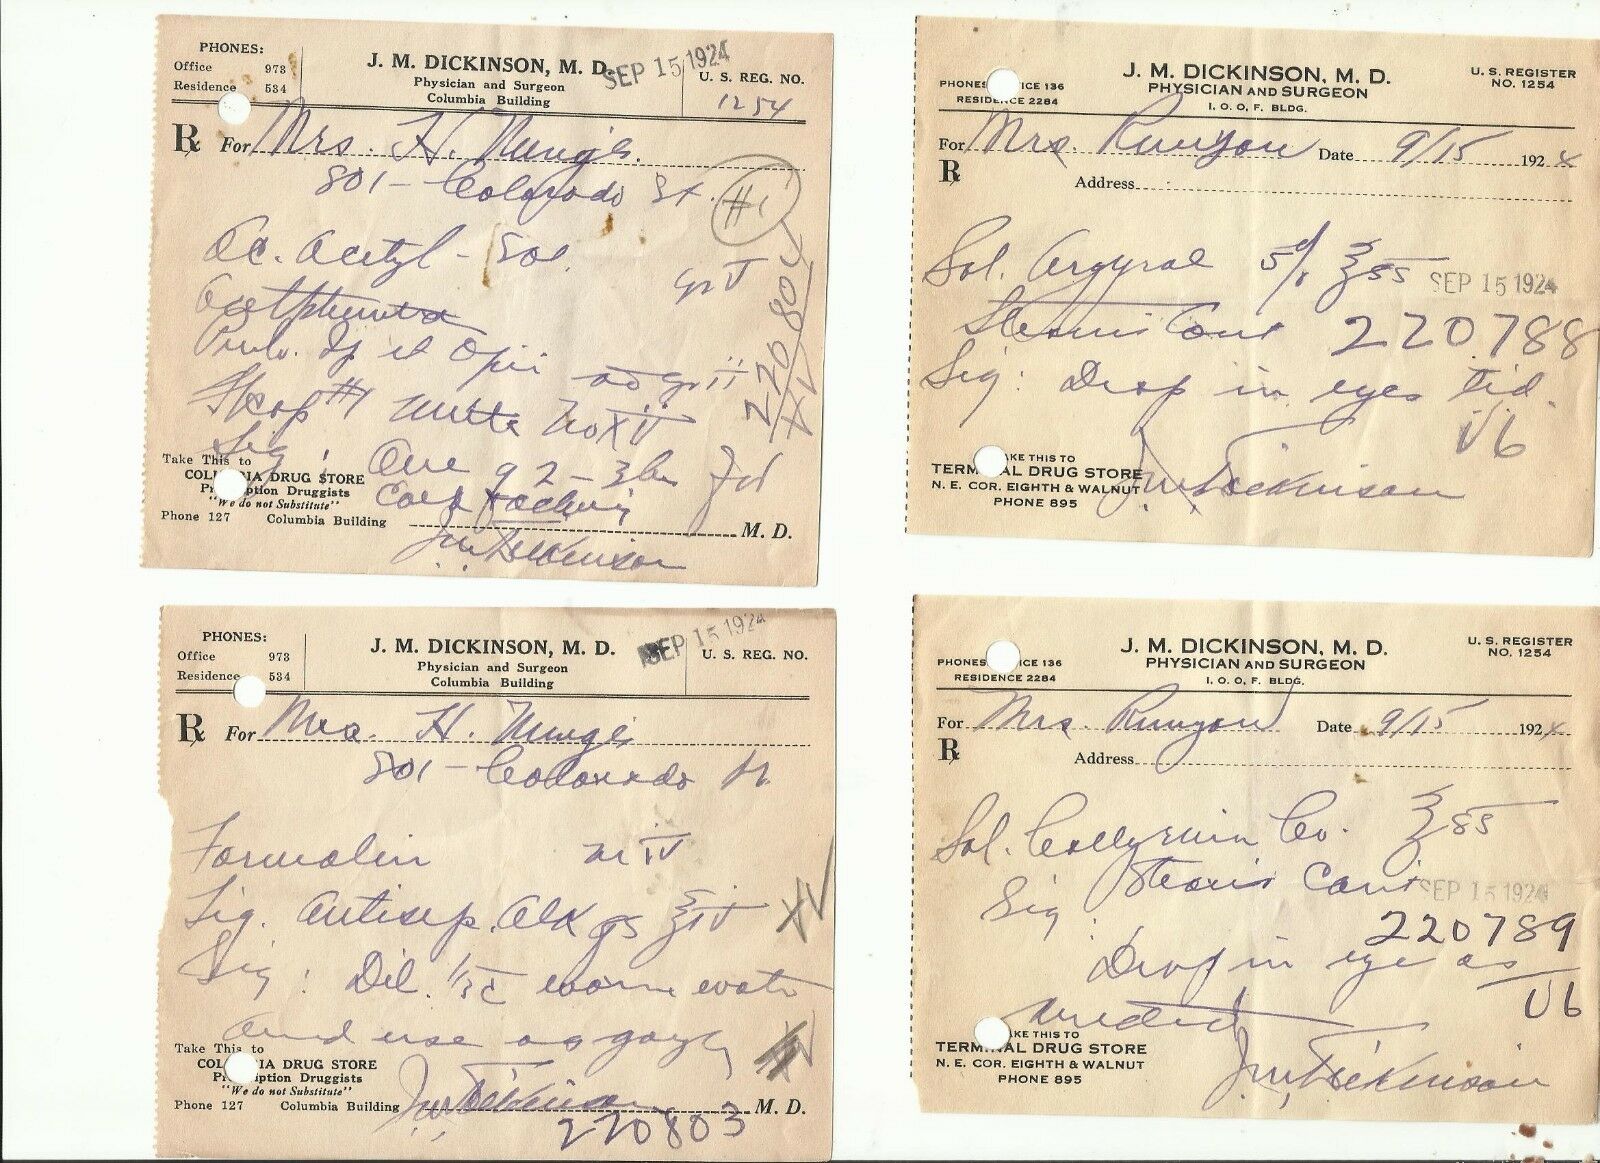 PHONES:
Office 973
Residence 534
J. M. DICKINSON, M. D.
Physician and Surgeon
Columbia Building
SEP 15 1924
U. S. REG. NO.
1254
℞ For Mrs. H.
801 - Colorado St.
#1
Ac. Acetyl - Sal. gr V
Pulv. Ip et Opii
Sig: One q 2-3 hr
220802
XV
Take This to
COLUMBIA DRUG STORE
Prescription Druggists
"We do not Substitute"
Phone 127 Columbia Building
M. D.
J. M. Dickinson
PHONES OFFICE 136
RESIDENCE 2284
J. M. DICKINSON, M. D.
PHYSICIAN AND SURGEON
I. O. O. F. BLDG.
U. S. REGISTER
NO. 1254
For Mrs. Runyon Date 9/15 1924
℞
Address
Sol. Argyrol 5% ʒss
SEP 15 1924
220788
Sig: Drop in eyes tid.
TAKE THIS TO
TERMINAL DRUG STORE
N. E. COR. EIGHTH & WALNUT
PHONE 895
J. M. Dickinson
PHONES:
Office 973
Residence 534
J. M. DICKINSON, M. D.
Physician and Surgeon
Columbia Building
SEP 15 1924
U. S. REG. NO.
℞ For Mrs. H.
801 - Colorado St.
Formalin m iv
Liq. Antisep. Alk qs ℥iv
XV
Sig: Dil. warm water
and use as gargle
Take This to
COLUMBIA DRUG STORE
Prescription Druggists
"We do not Substitute"
Phone 127 Columbia Building
M. D.
J. M. Dickinson
220803
PHONES OFFICE 136
RESIDENCE 2284
J. M. DICKINSON, M. D.
PHYSICIAN AND SURGEON
I. O. O. F. BLDG.
U. S. REGISTER
NO. 1254
For Mrs. Runyon Date 9/15 1924
℞
Address
Sol. Co. ʒss
SEP 15 1924
Sig:
220789
Drop in eye as
needed
TAKE THIS TO
TERMINAL DRUG STORE
N. E. COR. EIGHTH & WALNUT
PHONE 895
J. M. Dickinson